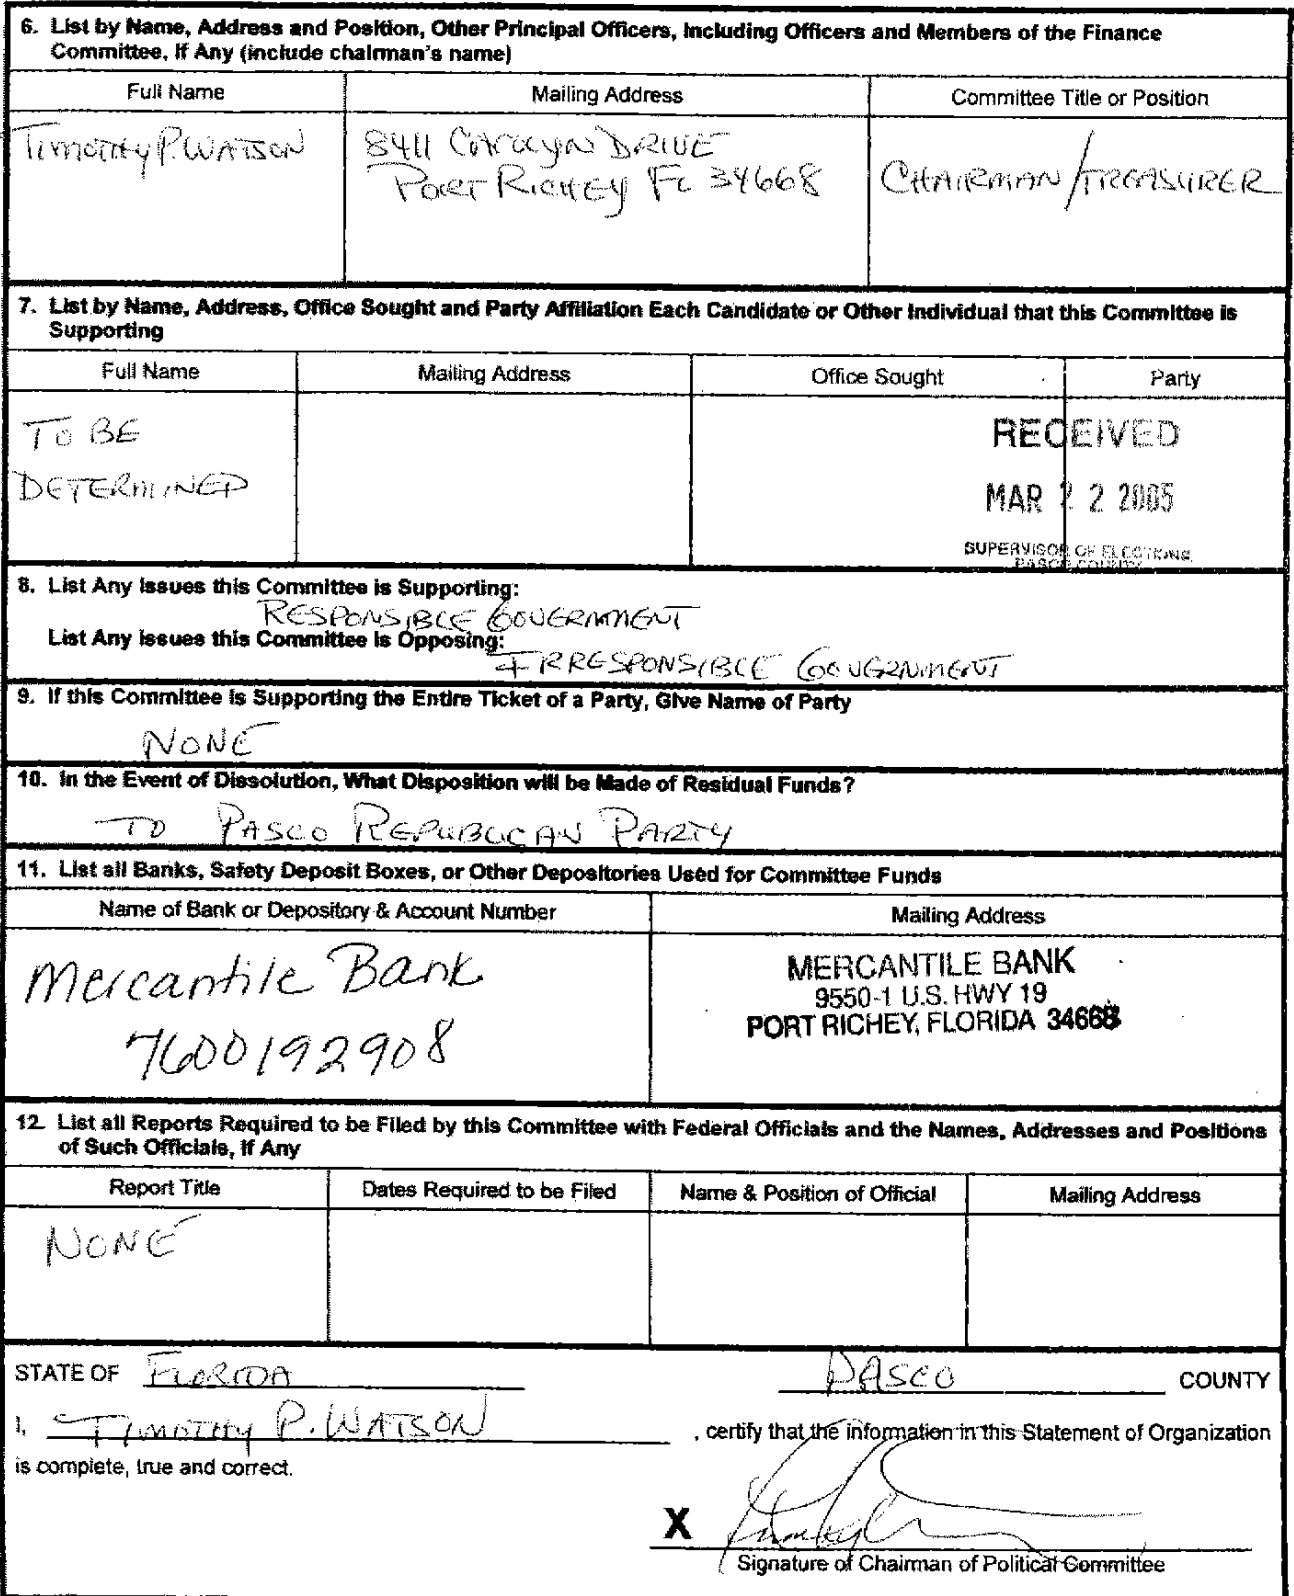 6. List by Name, Address and Position, Other Principal Officers, Including Officers and Members of the Finance
Committee, If Any (include chairman's name)
Full Name Mailing Address Committee Title or Position
TIMOTHY P. WATSON 8411 CAROLYN DRIVE
PORT RICHEY FL 34668 CHAIRMAN/TREASURER
7. List by Name, Address, Office Sought and Party Affiliation Each Candidate or Other Individual that this Committee is
Supporting
Full Name Mailing Address Office Sought Party
TO BE
DETERMINED
RECEIVED
MAR 22 2005
SUPERVISOR OF ELECTIONS
PASCO COUNTY
8. List Any Issues this Committee is Supporting:
RESPONSIBLE GOVERNMENT
List Any Issues this Committee is Opposing:
IRRESPONSIBLE GOVERNMENT
9. If this Committee is Supporting the Entire Ticket of a Party, Give Name of Party
NONE
10. In the Event of Dissolution, What Disposition will be Made of Residual Funds?
TO PASCO REPUBLICAN PARTY
11. List all Banks, Safety Deposit Boxes, or Other Depositories Used for Committee Funds
Name of Bank or Depository & Account Number Mailing Address
Mercantile Bank
7600192908
MERCANTILE BANK
9550-1 U.S. HWY 19
PORT RICHEY, FLORIDA 34668
12. List all Reports Required to be Filed by this Committee with Federal Officials and the Names, Addresses and Positions
of Such Officials, If Any
Report Title Dates Required to be Filed Name & Position of Official Mailing Address
NONE
STATE OF FLORIDA PASCO COUNTY
I, TIMOTHY P. WATSON , certify that the information in this Statement of Organization
is complete, true and correct.
X
Signature of Chairman of Political Committee